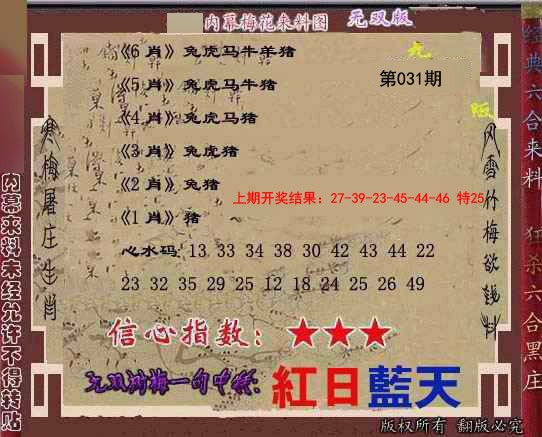 内幕梅花来料图 无双版
《6 肖》兔虎马牛羊猪
《5 肖》兔虎马牛猪
第031期
《4 肖》兔虎马猪
《3 肖》兔虎猪
《2 肖》兔猪
上期开奖结果：27-39-23-45-44-46 特25
《1 肖》猪
心水码: 13 33 34 38 30 42 43 44 22
23 32 35 29 25 12 18 24 25 26 49
信心指数：★★★
无双浏梅一句中特:紅日藍天
版权所有 翻版必究
寒梅屠庄生肖
风雪竹梅欲钱料
内幕来料未经允许不得转贴
经典六合来料 狂杀六合黑庄